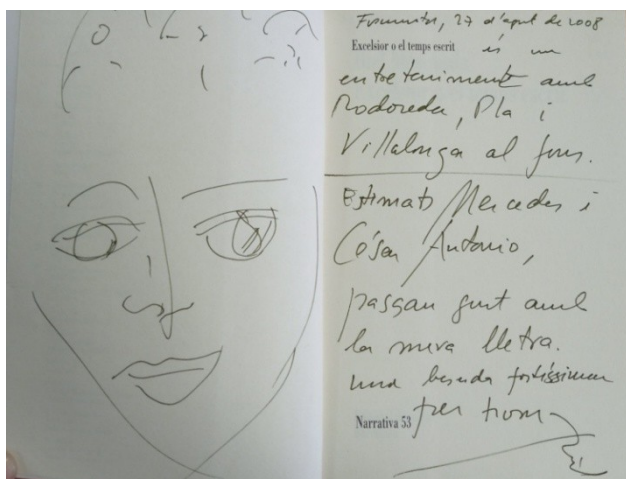 Formentor, 27 d'agost de 2008
Excelsior o el temps escrit és un
entreteniment amb
Rodoreda, Pla i
Villalonga al fons.
Estimats Mercedes i
César Antonio,
passau gust amb
la meva lletra.
Una besada fortíssima
per tom
Narrativa 53